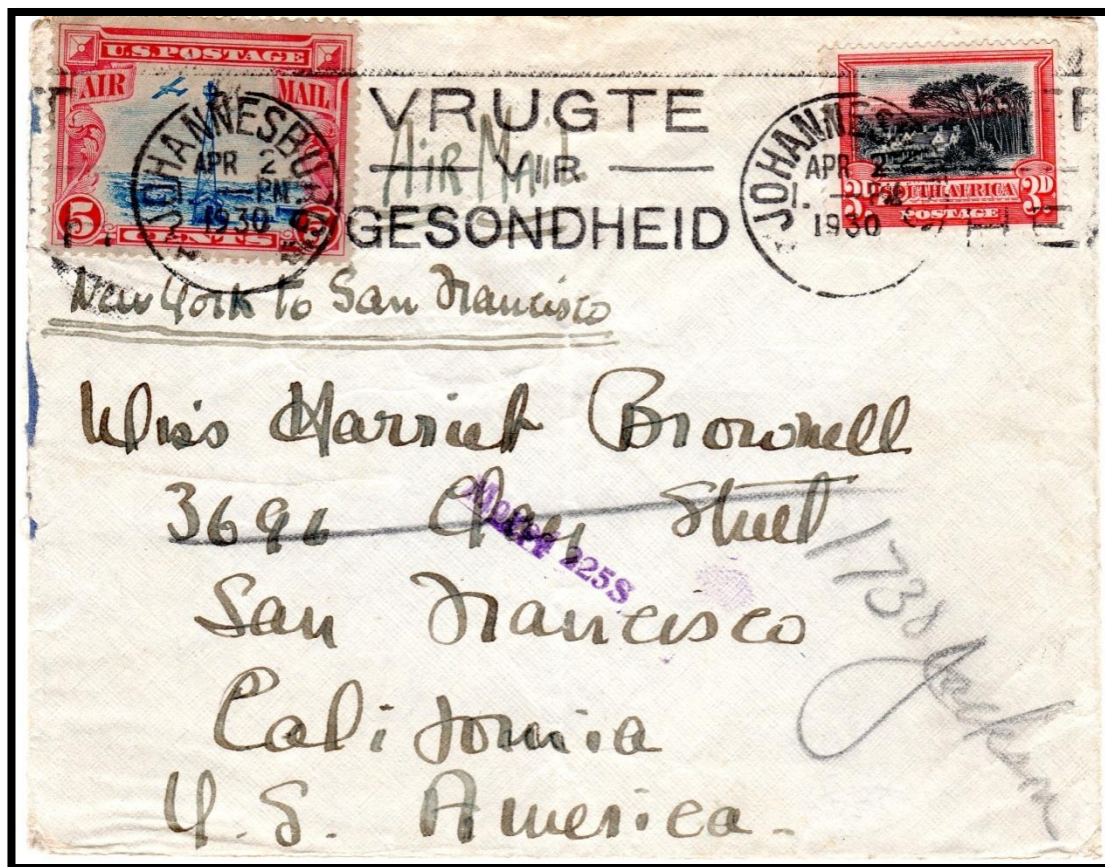 U.S.POSTAGE
AIR MAIL
5 CENTS 5
JOHANNESBURG
APR 2
PM
1930
VRUGTE
VIR
GESONDHEID
Air Mail
JOHANNES
APR 2
PM
1930
3D SOUTH AFRICA 3D
POSTAGE
New York to San Francisco
Miss Harriet Brownell
3696 Clay Street
225S
1738 Jackson
San Francisco
California
U.S. America.